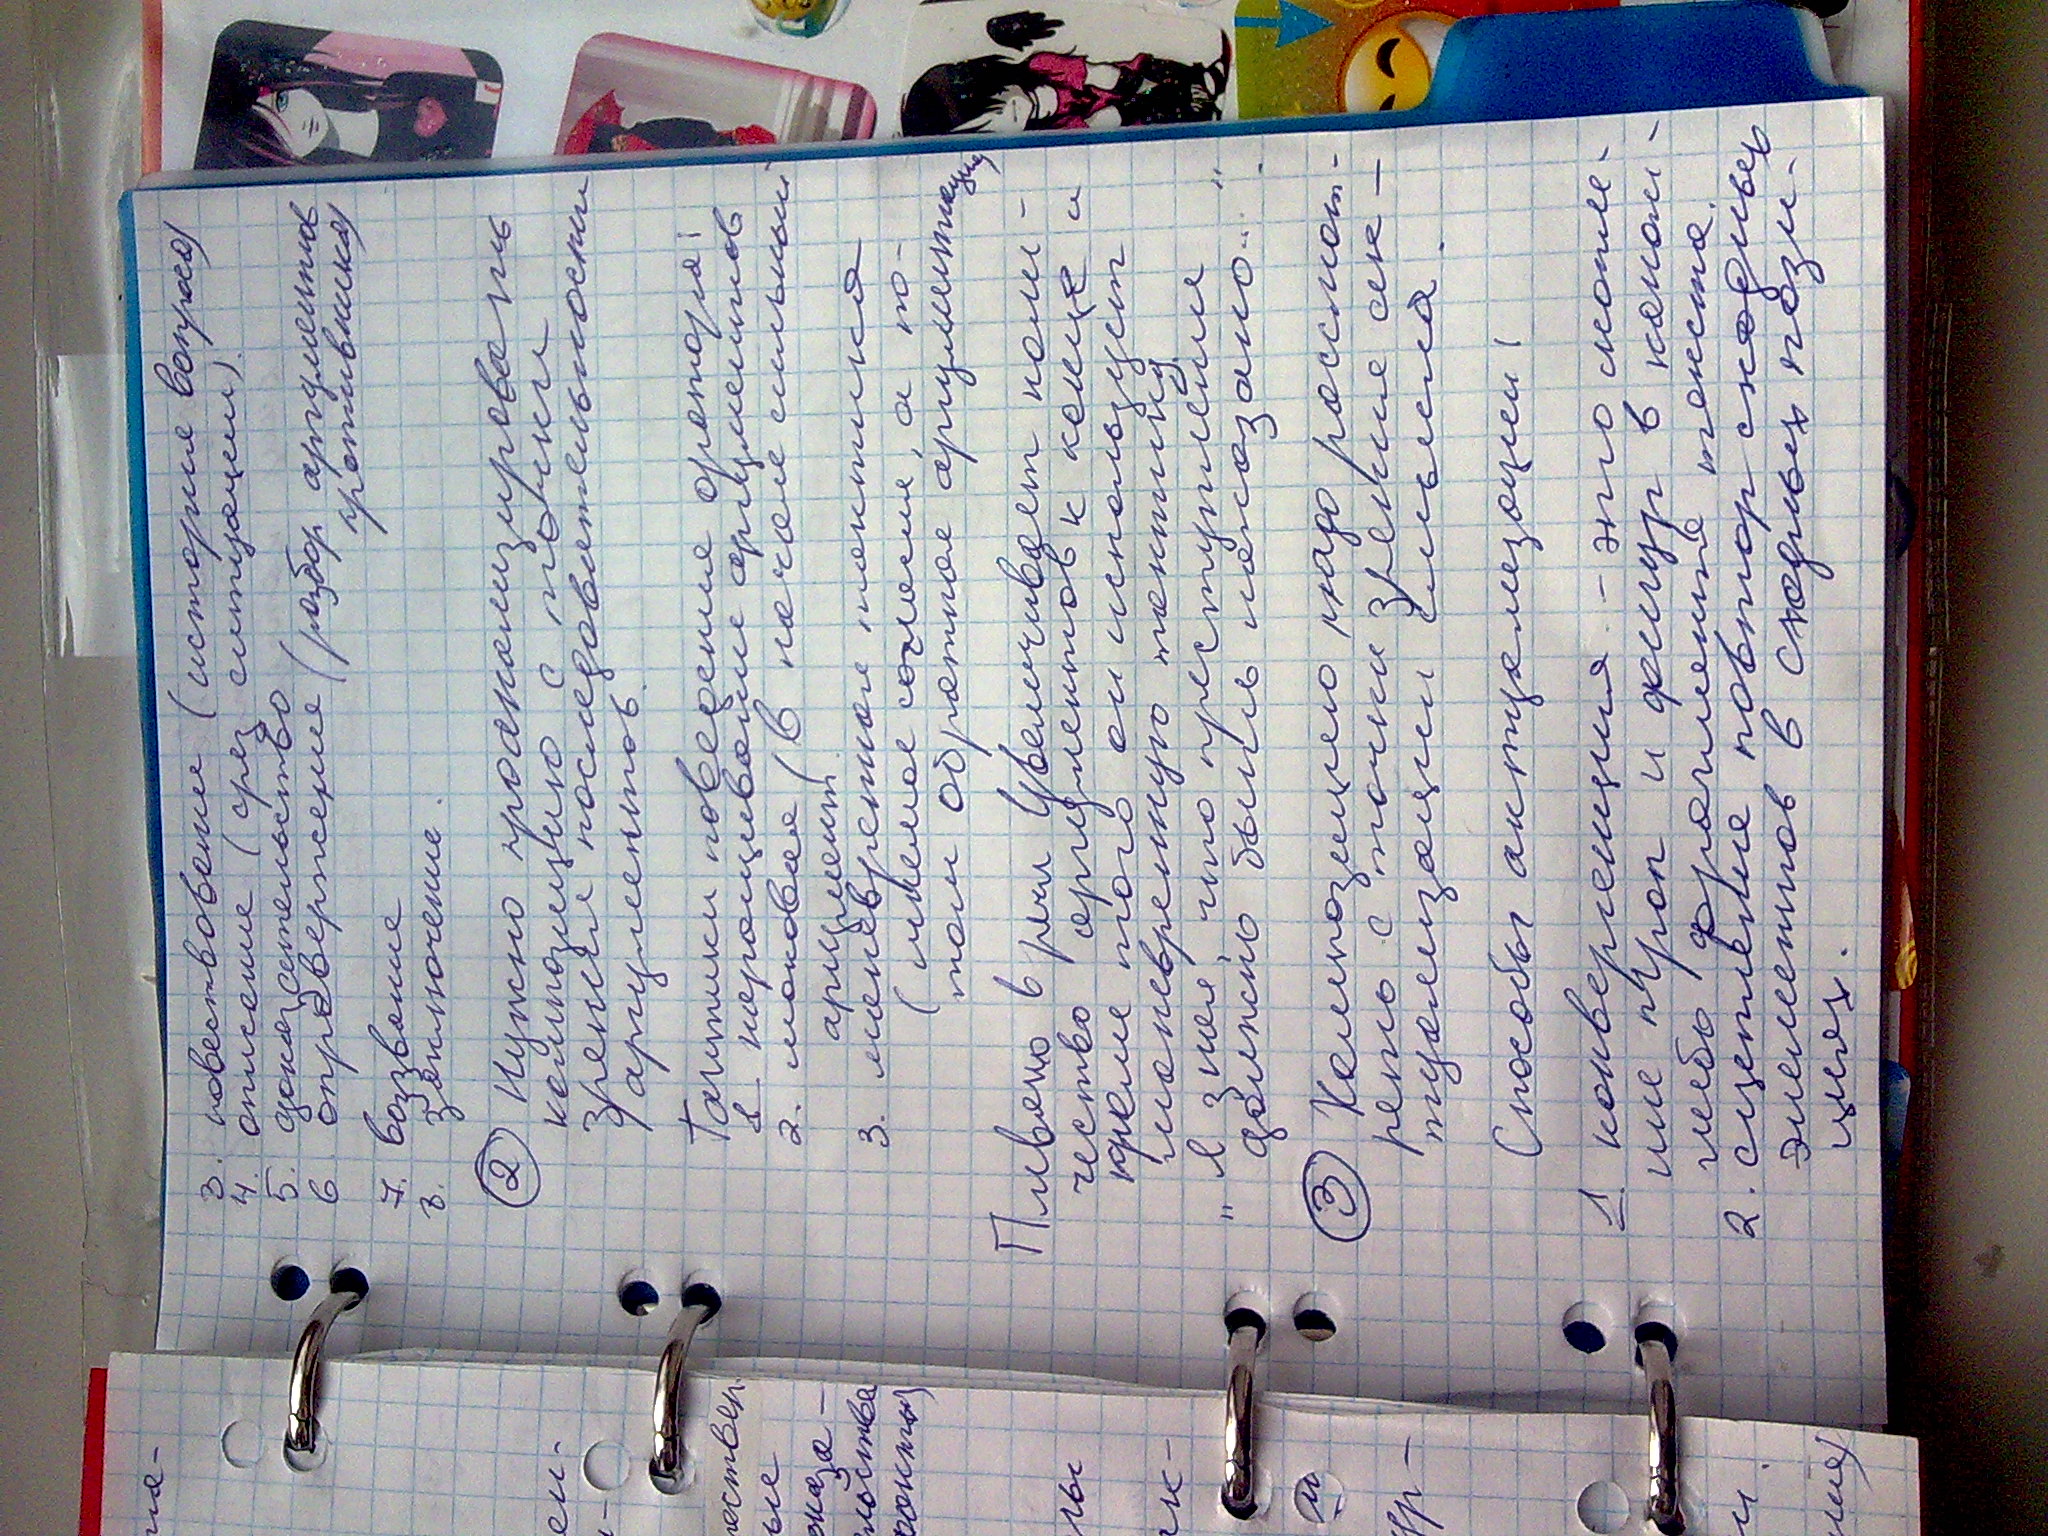 3. повествование (история вопроса)
4. описание (срез ситуации).
5. доказательство
6. опровержение (разбор аргументов
противника)
7. воззвание
8. заключение.
② Нужно проанализировать
композицию с точки
зрения последовательности
аргументов.
Тактики поведения оратора:
1. наращивание аргументов
2. лобовая (в начале сильный
аргумент.
3. маневренная тактика
(мнимое согласие, а по-
том обратное аргументация)
Плевако в речи увеличивает коли-
чество аргументов к концу и
кроме того он использует
маневренную тактику.
" я знал, что преступление "
должно быть наказано..." .
③ Композицию надо рассмот-
реть с точки зрения ак-
туализации смысла.
Способы актуализации:
1. конвергенция - это скопле-
ние троп и фигур в каком-
либо фрагменте текста.
2. сцепление повтор сходных
элементов в сходных пози-
циях.